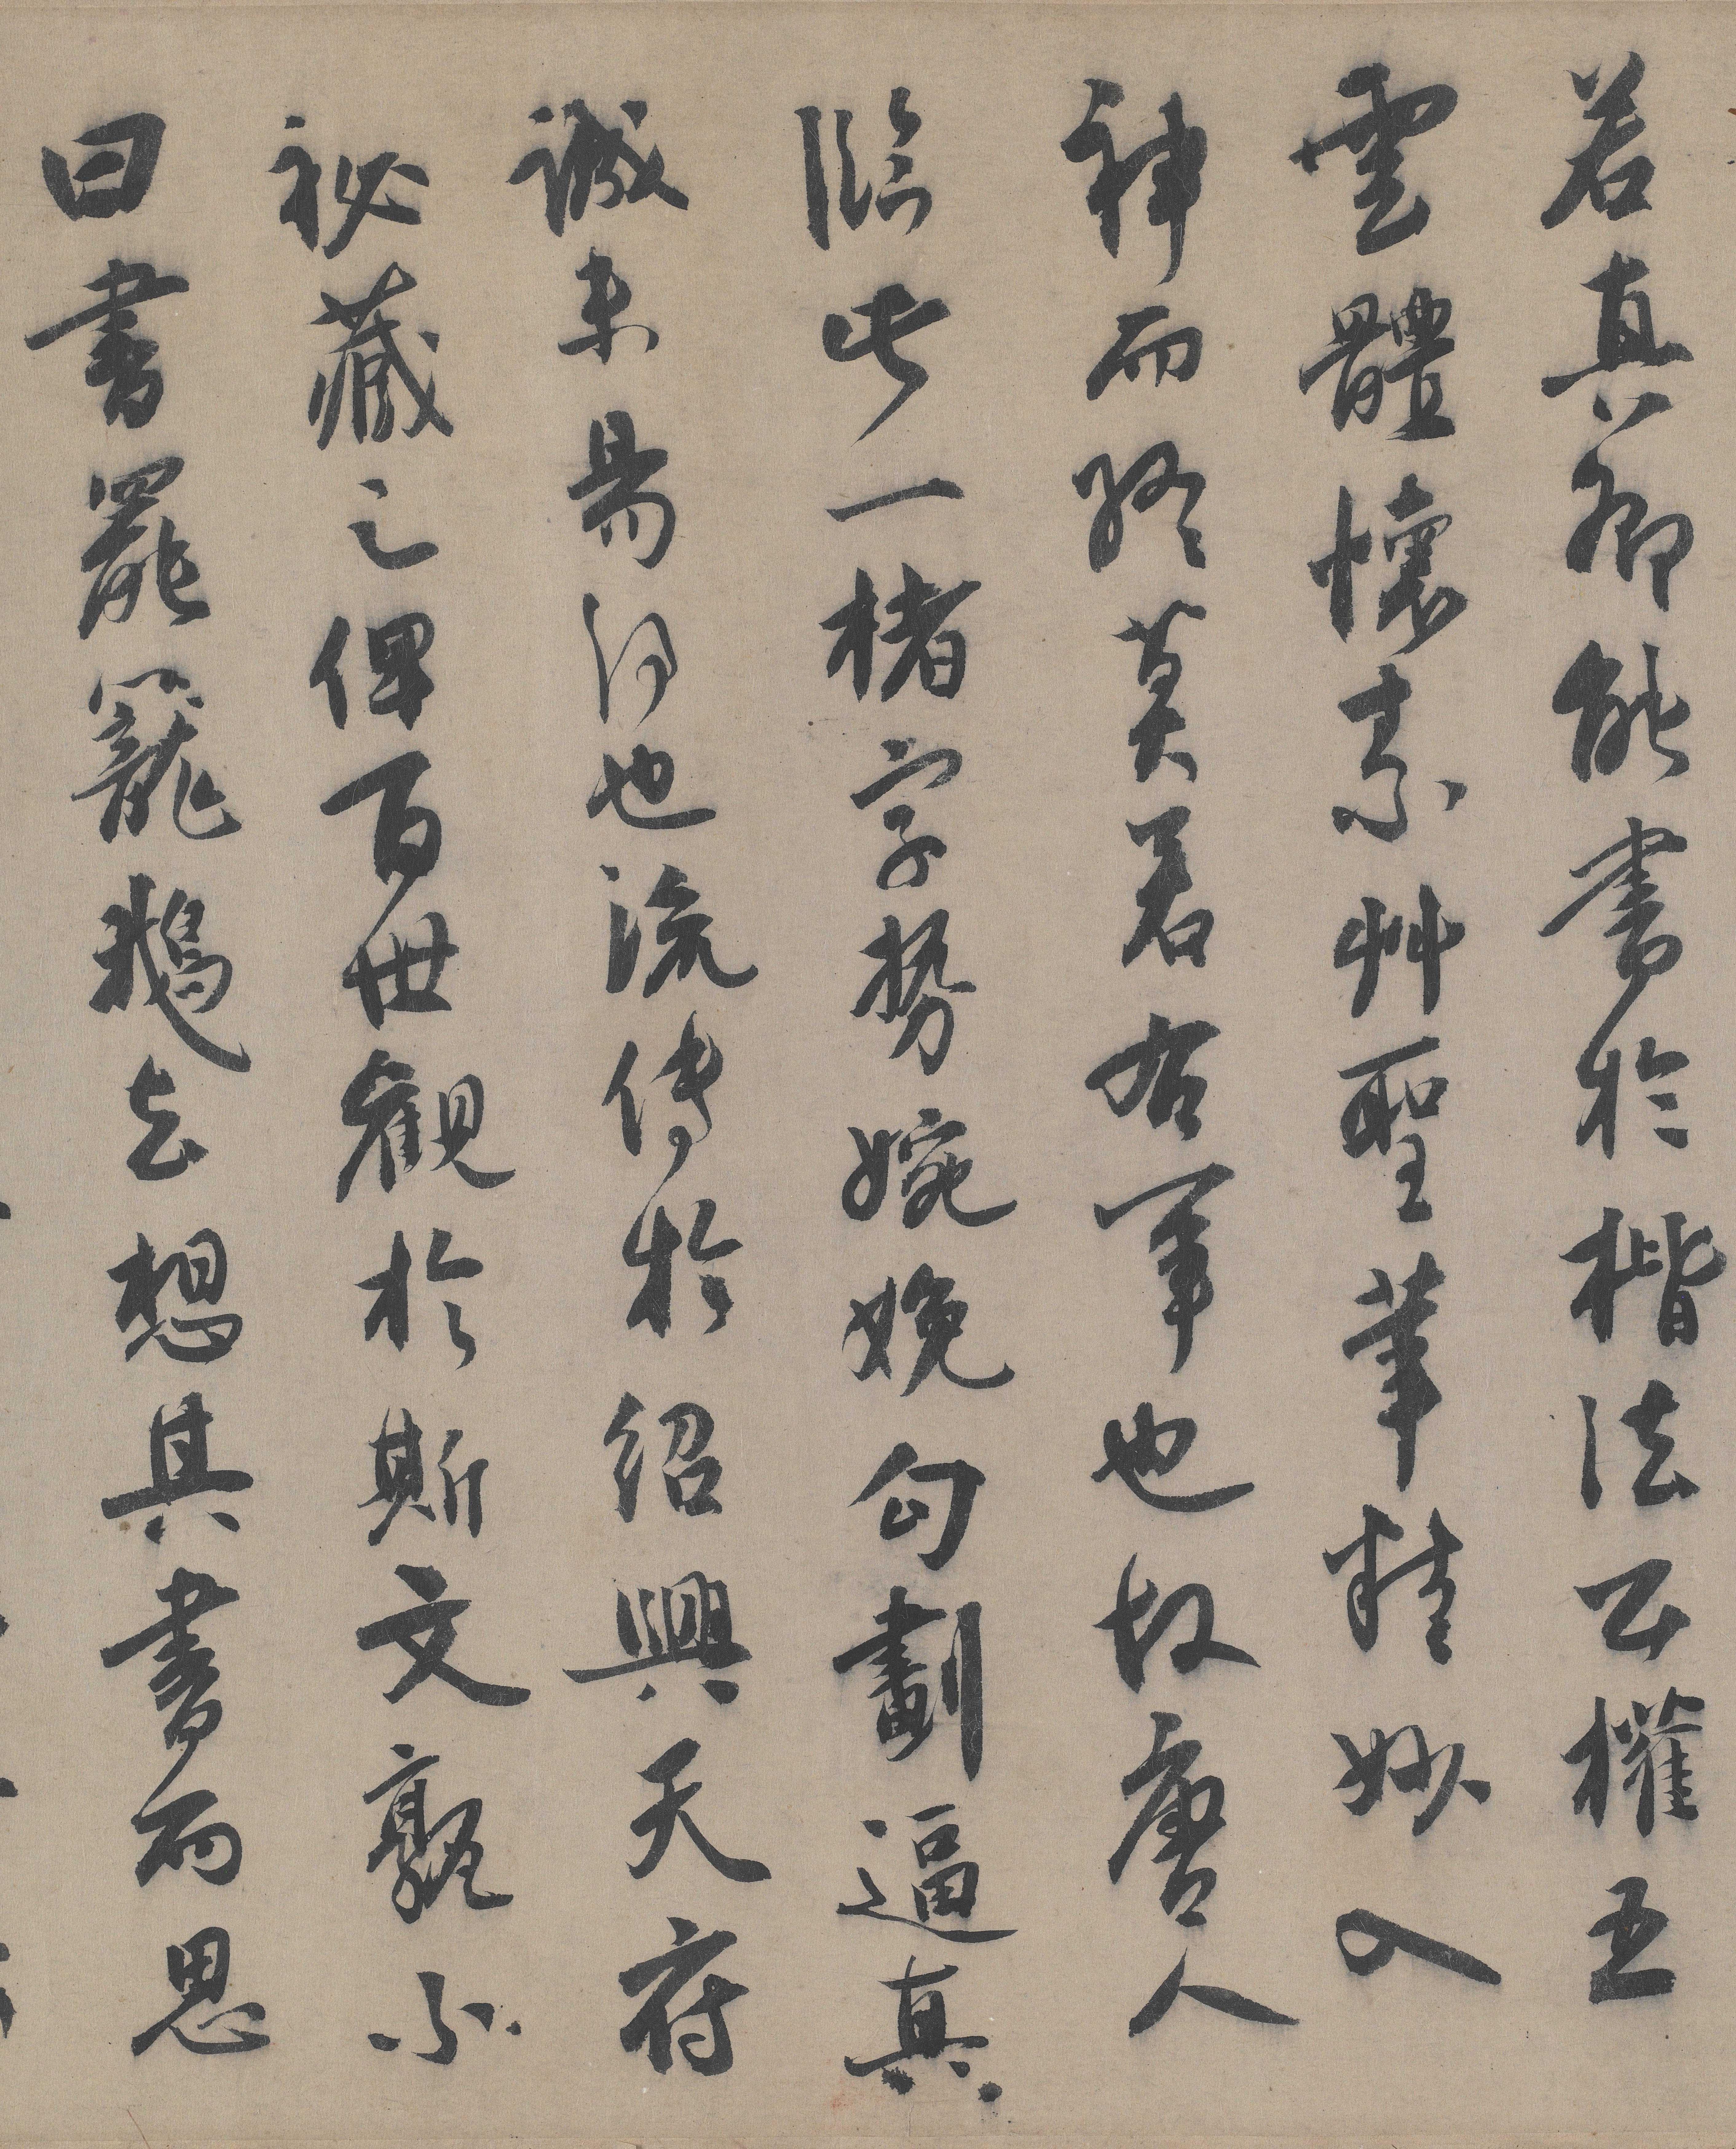 若真卿能書於楷法公權五
雲體懷素艸聖筆精妙入
神而終莫若右軍也故唐人
臨此一楮字勢婉娩勾劃逼真
誠未易得也流傳於紹興天府
祕藏之俾百世觀於斯文翫不
曰書罷籠鵝去想其書而思